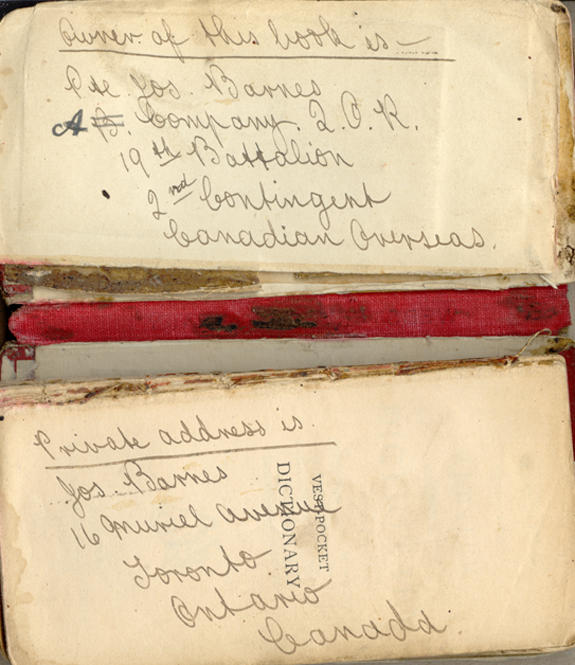 Owner of this book is —
Pte Jos. Barnes
A B. Company. Q.O.R.
19th Battalion
2nd Contingent
Canadian Overseas.
Private address is
Jos. Barnes
16 Muriel Avenue
Toronto
Ontario
Canada.
VEST-POCKET
DICTIONARY